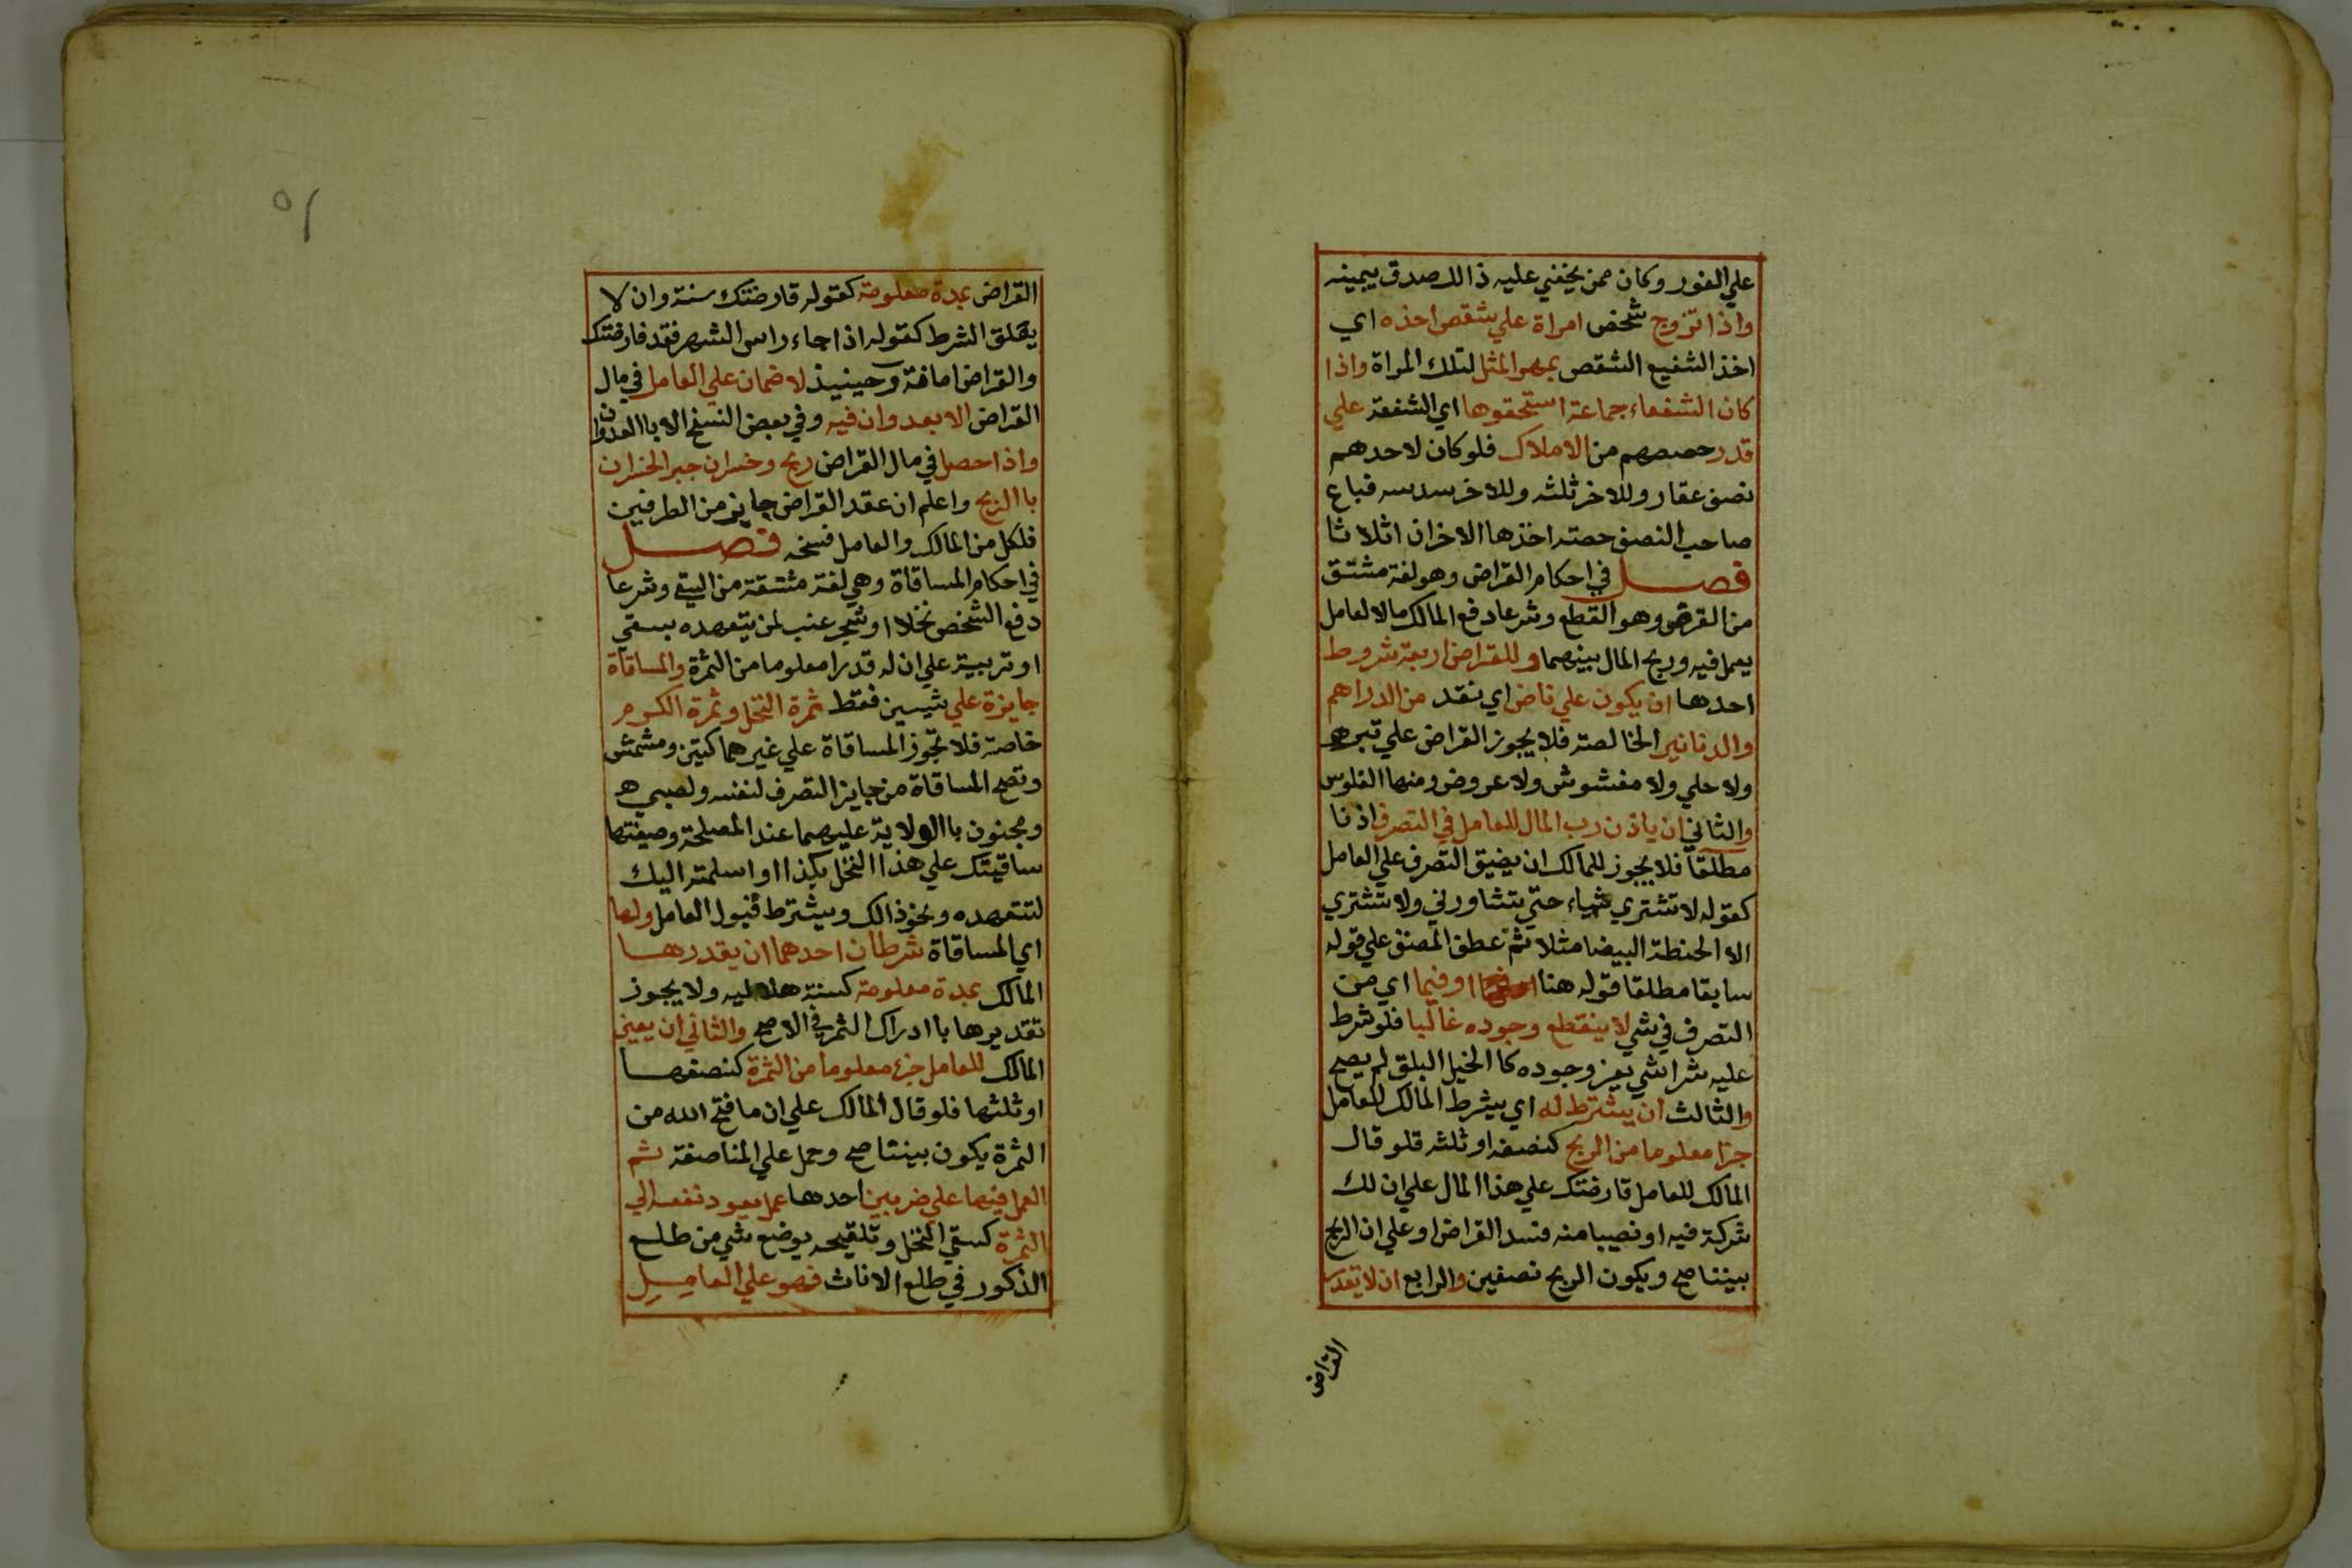 علي الفور وكان ممن يخفي عليه ذالك صدق بيمينه
واذا تزوج شخص امراة علي شقص اخذه اي
اخذ الشفيع الشقص بمهر المثل لتلك المراة واذا
كان الشفعاء جماعة استحقوها اي الشفعة علي
قدر حصصهم من الاملاك فلو كان لاحدهم
نصف عقار وللاخر ثلثه وللاخر سدسه فباع
صاحب النصف حصته اخذها الاخران اثلاثا
فصل في احكام القراض وهو لغة مشتق
من القرض وهو القطع وشرعا دفع المالك مالا لعامل
يعمل فيه وربح المال بينهما وللقراض اربعة شروط
احدها ان يكون علي ناض اي نقد من الدراهم
والدنانير الخالصة فلا يجوز القراض علي تبر
ولا حلي ولا مغشوش ولا عروض ومنها الفلوس
والثاني ان ياذن رب المال للعامل في التصرف اذنا
مطلقا فلا يجوز للمالك ان يضيق التصرف علي العامل
كقوله لا تشتري شياء حتي تشاورني ولا تشتري
الا الحنطة البيضا مثلا ثم عطف المصنف علي قوله
سابقا مطلقا قوله هنا او فيما اي من
التصرف في شي لا ينقطع وجوده غالبا فلو شرط
عليه شرا شي يعز وجوده كاالخيل البلق لم يصح
والثالث ان يشترط له اي يشرط المالك للعامل
جزا معلوما من الربح كنصفه او ثلثه قلو قال
المالك للعامل قارضتك علي هذا المال علي ان لك
شركة فيه او نصيبا منه فسد القراض او علي ان الربح
بيننا صح ويكون الربح نصفين والرابع ان لا يقدر
القراض
٥١
القراض بمدة معلومة كقوله قارضتك سنة وان لا
يعلق الشرط كقوله اذا جاء راس الشهر فقد قارضتك
والقراض امانة وحينيذ لا ضمان علي العامل في مال
القراض الا بعدوان فيه وفي بعض النسخ الا باالعدوان
واذا حصل في مال القراض ربح وخسران جبر الخسران
باالربح واعلم ان عقد القراض جايز من الطرفين
فلكل من المالك والعامل فسخه فصل
في احكام المساقاة وهي لغة مشتقة من السقي وشرعا
دفع الشخص نخلا او شجر عنب لمن يتعهده بسقي
او تربية علي ان له قدرا معلوما من الثمرة والمساقاة
جايزة علي شيين فقط ثمرة النخل وثمرة الكرم
خاصة فلا تجوز المساقاة علي غيرهما كتين ومشمش
وتصح المساقاة من جايز التصرف لنفسه ولصبي
ومجنون باالولاية عليهما عند المصلحة وصيغتها
ساقيتك علي هذا النخل بكذا او اسلمته اليك
لتتعهده ونحو ذالك ويشترط قبول العامل ولها
اي المساقاة شرطان احدهما ان يقدرها
المالك بمدة معلومة كسنة هلاليه ولا يجوز
تقديرها باادراك الثمر في الاصح والثاني ان يعين
المالك للعامل جزء معلوما من الثمرة كنصفها
او ثلثها فلو قال المالك علي ان ما فتح الله من
الثمرة يكون بيننا صح وحمل علي المناصفة ثم
العمل فيها علي ضربين احدها عمل يعود نفعه الي
الثمرة كسقي النخل وتلقيحه بوضع شي من طلع
الذكور في طلع الاناث فهو علي العامل